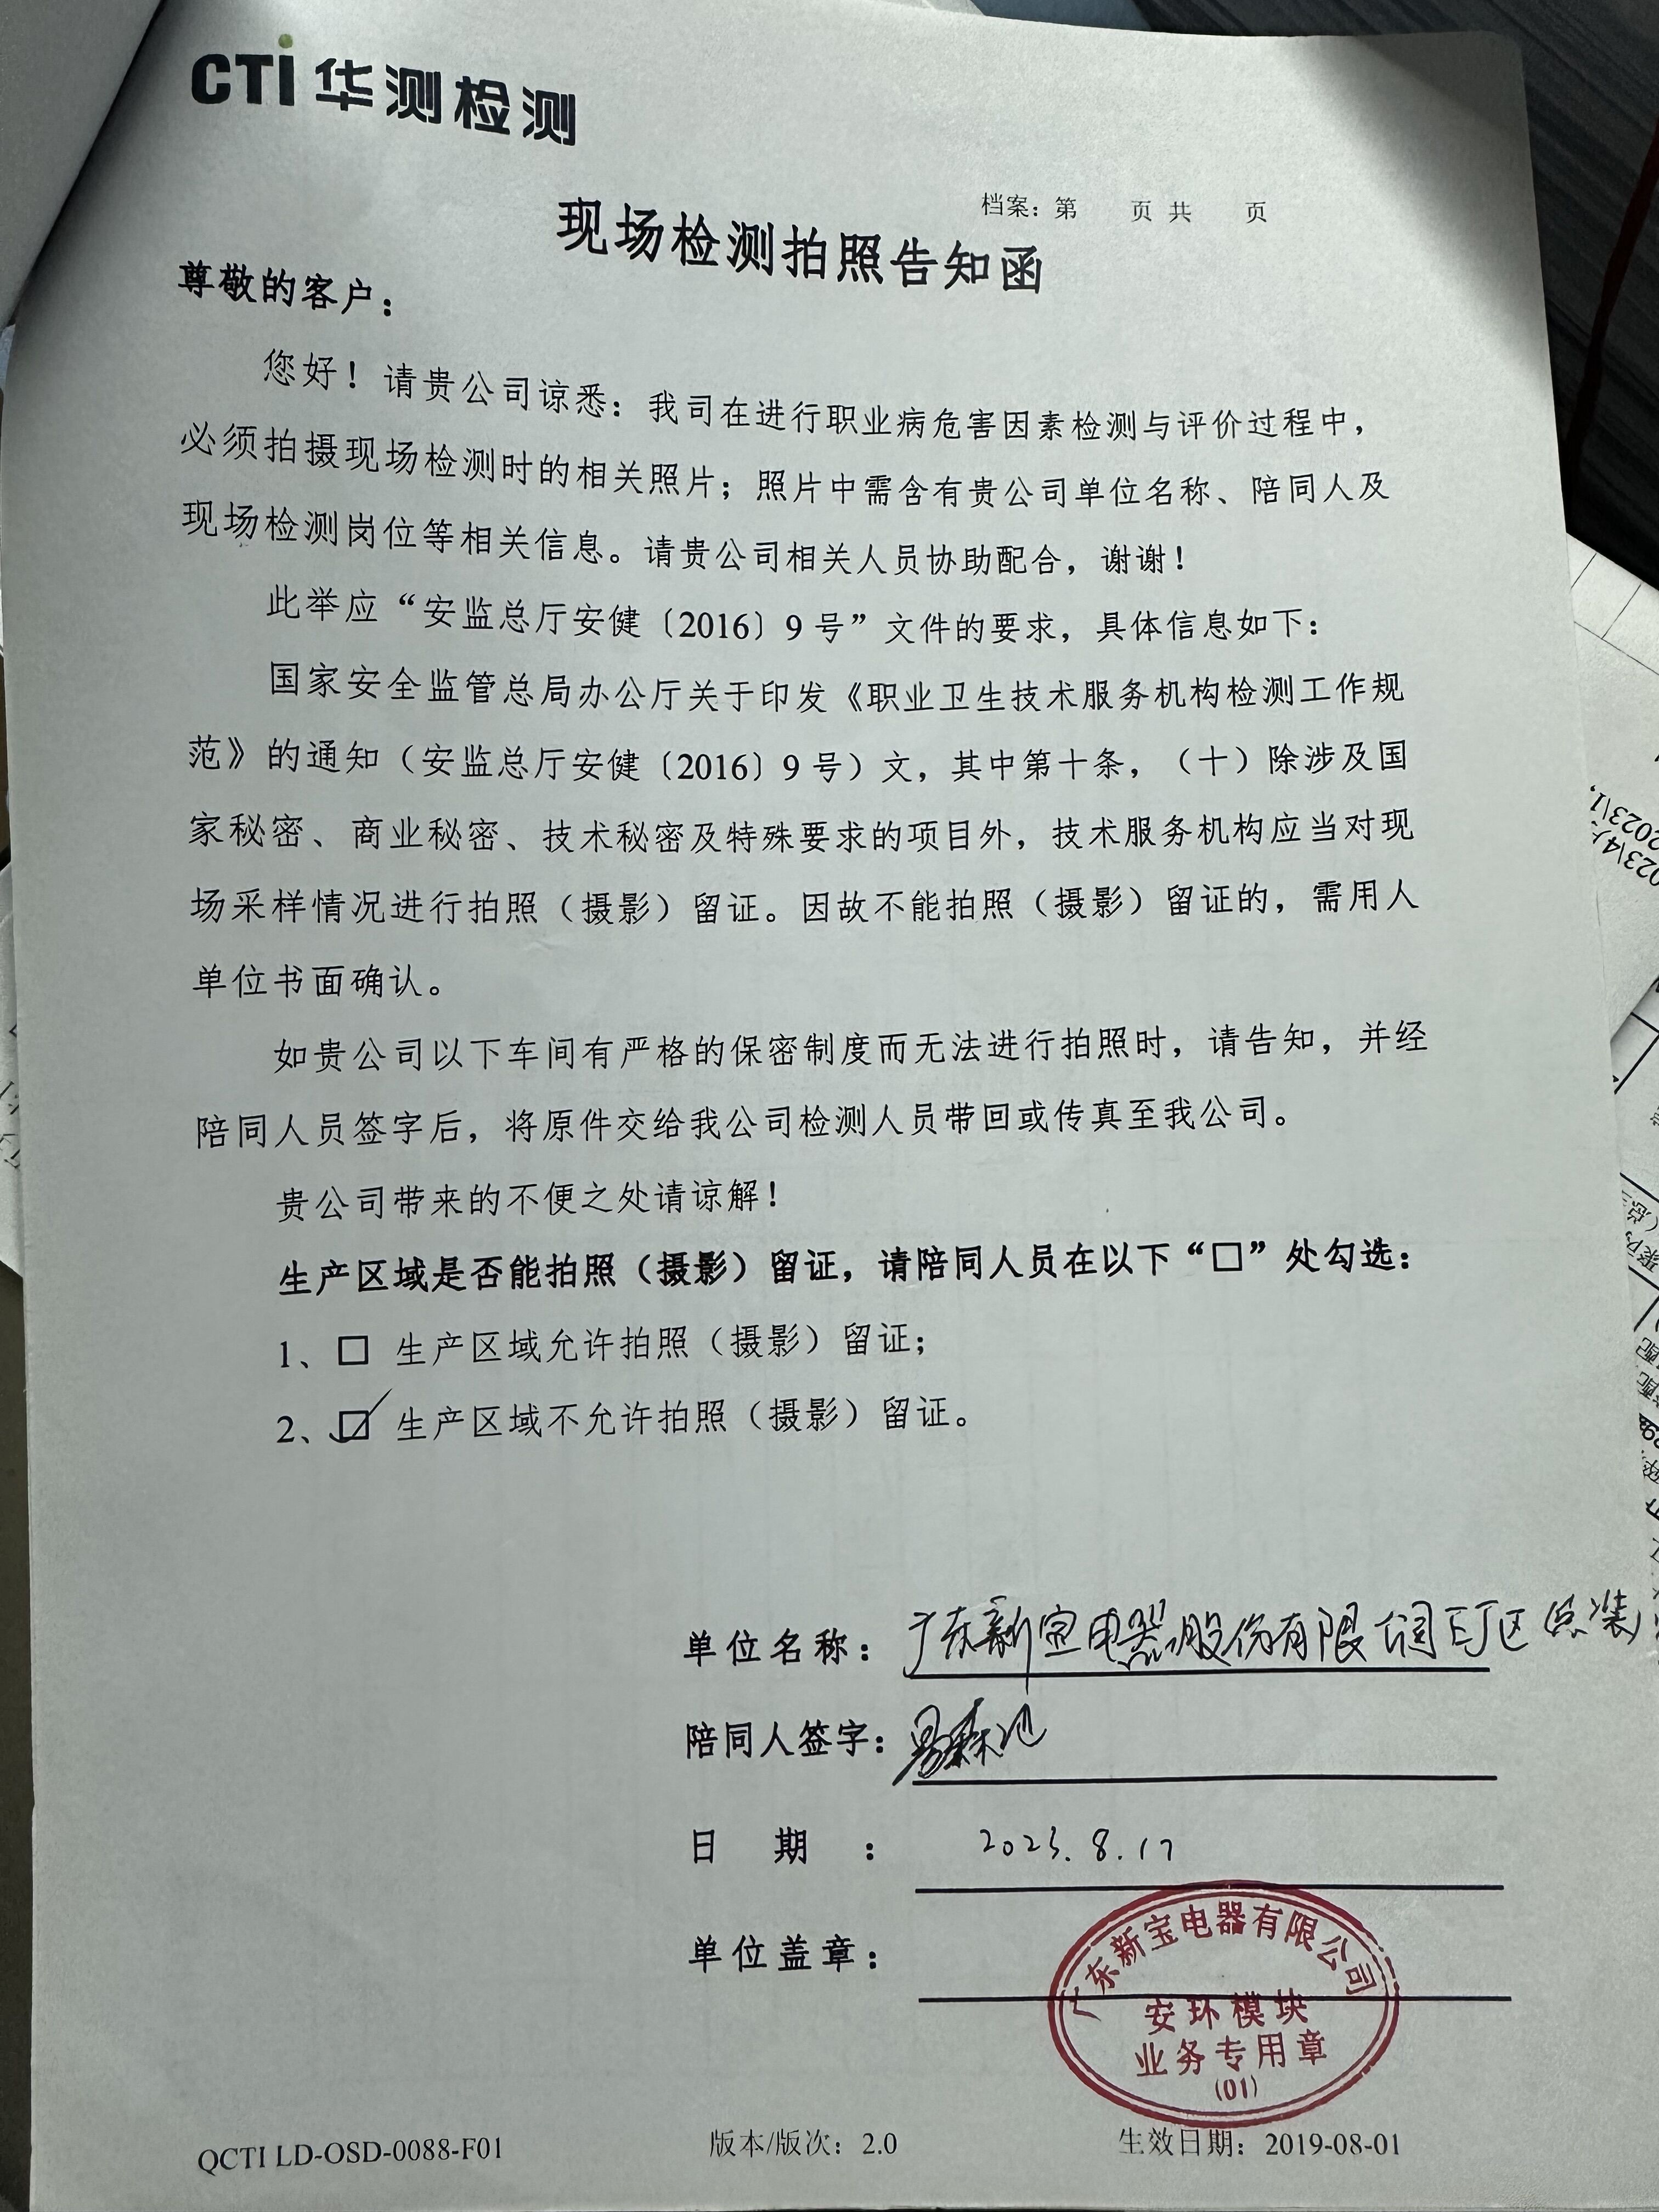 CTI 华测检测
档案：第 页 共 页
现场检测拍照告知函
尊敬的客户：
您好！请贵公司谅悉：我司在进行职业病危害因素检测与评价过程中，
必须拍摄现场检测时的相关照片；照片中需含有贵公司单位名称、陪同人及
现场检测岗位等相关信息。请贵公司相关人员协助配合，谢谢！
此举应“安监总厅安健〔2016〕9号”文件的要求，具体信息如下：
国家安全监管总局办公厅关于印发《职业卫生技术服务机构检测工作规
范》的通知（安监总厅安健〔2016〕9号）文，其中第十条，（十）除涉及国
家秘密、商业秘密、技术秘密及特殊要求的项目外，技术服务机构应当对现
场采样情况进行拍照（摄影）留证。因故不能拍照（摄影）留证的，需用人
单位书面确认。
如贵公司以下车间有严格的保密制度而无法进行拍照时，请告知，并经
陪同人员签字后，将原件交给我公司检测人员带回或传真至我公司。
贵公司带来的不便之处请谅解！
生产区域是否能拍照（摄影）留证，请陪同人员在以下“□”处勾选：
1、□ 生产区域允许拍照（摄影）留证；
2、☑ 生产区域不允许拍照（摄影）留证。
单位名称：广东新宝电器股份有限公司 区 总装
陪同人签字：
日期：2023.8.17
单位盖章：
广东新宝电器有限公司
安环模块
业务专用章
(01)
QCTI LD-OSD-0088-F01 版本/版次：2.0 生效日期：2019-08-01